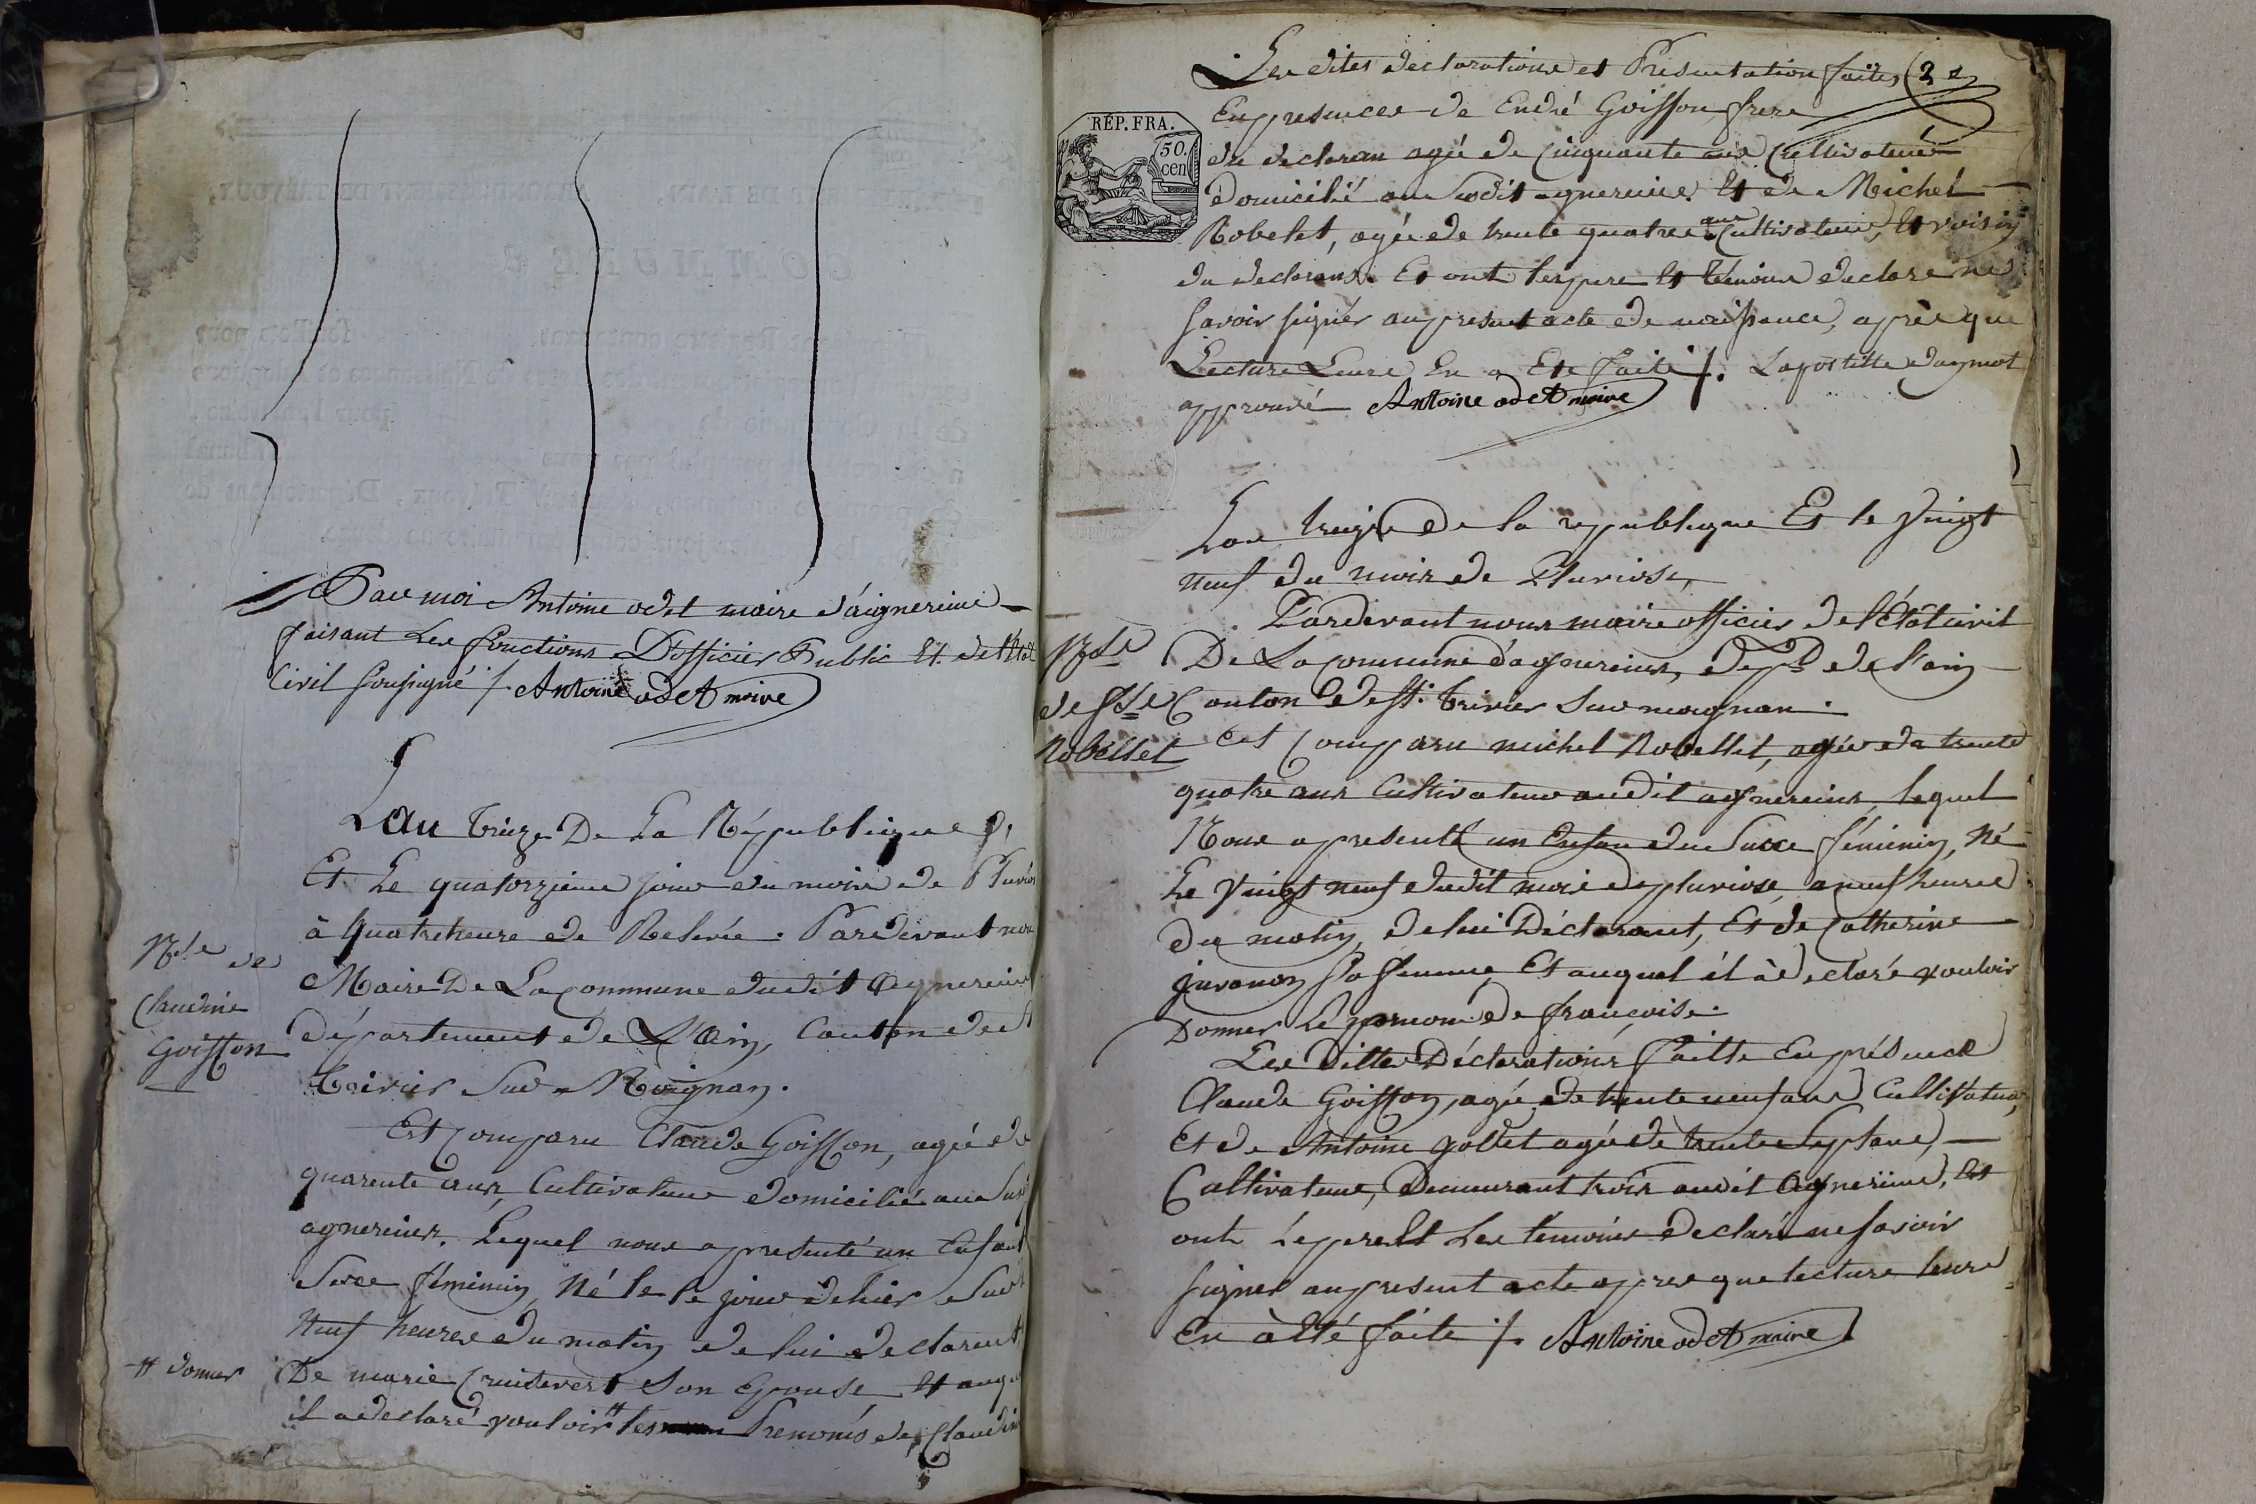 Par moi Antoine odet maire d'aignereins
faisant Les fonctions D'officier Public Et de l'Etat
Civil soussigné /. Antoine odet maire
Lan treize De La République
Et Le quatorzieme jour du mois de Pluvios
à quatre heure de Relevée. Pardevant nou
Maire De La Commune dudit agnereins
département de L'Ain, Canton de St
trivier Sur Moignan.
Nce de
Claudine
Goiffon
Est Comparu Claude Goiffon, agé de
quarente ans, Cultivateur domicilié au Sus
agnereins. Lequel nous a presenté un Enfant
Sexe féminin, Né le le jour dehier Sur
Neuf heures du matin de lui declarant
De marie Cruisevert Son Epouse Et auqu
# donner
il a declaré vouloir # les Prenoms de, Claudine
Les dites declarations et Présentation faites 2
En presences de André Goiffon frere
RÉP. FRA.
50.
cen
du declaran agé de Cinquante ans Cultivateur
Domicilié au Sudit agnereins. Et de Michel
Robelet, agée de trente quatres ans Cultivateur, Et voisin
du declarans. Et ont le pere Et témoins declare ne
savoir signér au present acte de naissance, après que
Lecture Leure En a Ete faite /. Lapostille du mot
approuvé Antoine odet maire
Lan treize de la republique Et le Vingt
neuf du mois de Pluviose,
Pardevant nous maire officier de l'état civil
Nce
de fse
Robellet
De La commune d'agnereins, dept de l'ain
Canton de St. trivier Sur moignan.
Est Comparu michel Robellet, agée de trente
quatre ans Cultivateur audit agnereins, lequel
Nous a presenté un Enfan du Sexe féminin, Né
Le Vingt neuf dudit mois de pluviose, a neuf heures
du matin, de lui Déclarant, Et de Catherine
juvanon sa femme, Et auquel il à declaré vouloir
Donner Le prenom de françoise.
Les Dittes Déclarations faitte En présence
Claude Goiffon, agé de trente neuf ans Cultivateur,
Et de Antoine gollet agé de trente Sept ans,
Cultivateur, Demeurant trois audit Agnereins, Et
ont le pere Et Les témoins declaré ne savoir
signer au present acte apres que lecture leure
En à Eté faite /. Antoine odet maire